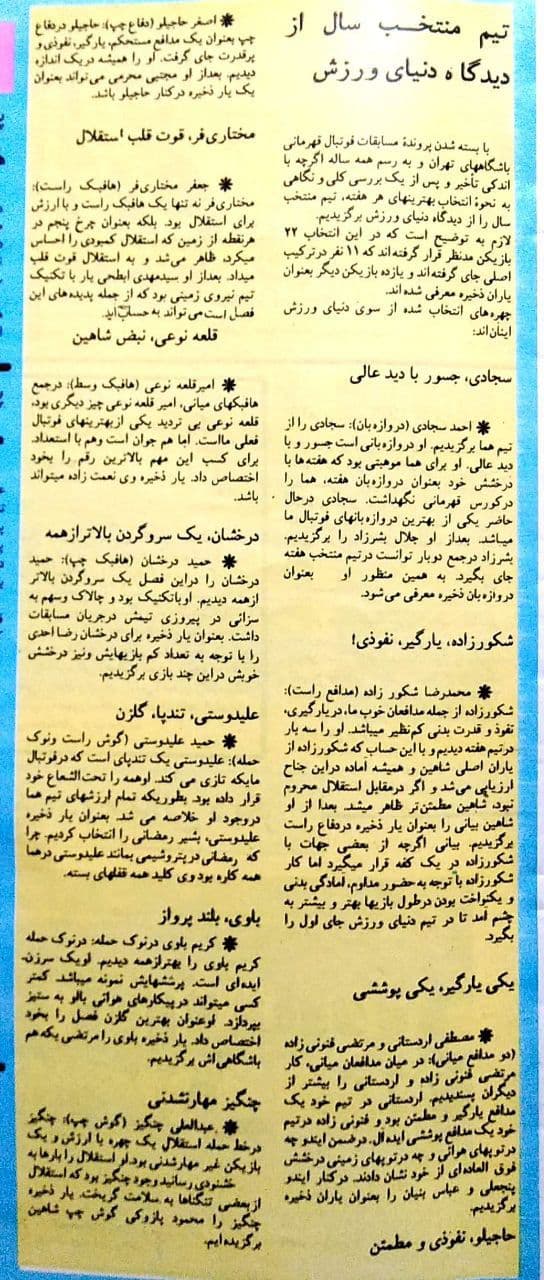 تیم منتخب سال از
دیدگاه دنیای ورزش
با بسته شدن پروندهٔ مسابقات فوتبال قهرمانی
باشگاههای تهران و به رسم همه ساله اگرچه با
اندکی تأخیر و پس از یک بررسی کلی و نگاهی
به نحوهٔ انتخاب بهترینهای هر هفته، تیم منتخب
سال را از دیدگاه دنیای ورزش برگزیدیم.
لازم به توضیح است که در این انتخاب ۲۲
بازیکن مدنظر قرار گرفته‌اند که ۱۱ نفر در ترکیب
اصلی جای گرفته‌اند و یازده بازیکن دیگر بعنوان
یاران ذخیره معرفی شده‌اند.
چهره‌های انتخاب شده از سوی دنیای ورزش
اینان‌اند:
سجادی، جسور با دید عالی
✷ احمد سجادی (دروازه‌بان): سجادی را از
تیم هما برگزیدیم. او دروازه‌بانی است جسور و با
دید عالی. او برای هما موهبتی بود که هفته‌ها با
درخشش خود بعنوان دروازه‌بان هفته، هما را
درکورس قهرمانی نگهداشت. سجادی درحال
حاضر یکی از بهترین دروازه‌بانهای فوتبال ما
میباشد. بعداز او جلال بشرزاد را برگزیدیم.
بشرزاد درجمع دوبار توانست درتیم منتخب هفته
جای بگیرد. به همین منظور او بعنوان
دروازه‌بان ذخیره معرفی می‌شود.
شکورزاده، یارگیر، نفوذی!
✷ محمدرضا شکور زاده (مدافع راست):
شکورزاده از جمله مدافعان خوب ما، دریارگیری،
نفوذ و قدرت بدنی کم‌نظیر میباشد. او را سه بار
درتیم هفته دیدیم و با این حساب که شکورزاده از
یاران اصلی شاهین و همیشه آماده دراین جناح
ارزیابی می‌شد و اگر درمقابل استقلال محروم
نبود، شاهین مطمئن‌تر ظاهر میشد. بعدا از او
شاهین بیانی را بعنوان یار ذخیره دردفاع راست
برگزیدیم. بیانی اگرچه از بعضی جهات با
شکورزاده در یک کفه قرار میگیرد اما کار
شکورزاده با توجه به حضور مداوم، آمادگی بدنی
و یکنواخت بودن درطول بازیها بهتر و بیشتر به
چشم آمد تا در تیم دنیای ورزش جای اول را
بگیرد.
یکی یارگیر، یکی پوششی
✷ مصطفی اردستانی و مرتضی فنونی زاده
(دو مدافع میانی): در میان مدافعان میانی، کار
مرتضی فنونی زاده و اردستانی را بیشتر از
دیگران پسندیدیم. اردستانی در تیم خود یک
مدافع یارگیر و مطمئن بود و فنونی زاده درتیم
خود یک مدافع پوششی ایده‌آل. درضمن ایندو چه
درتوپهای هوائی و چه درتوپهای زمینی درخشش
فوق العاده‌ای از خود نشان دادند. درکنار ایندو
پنجعلی و عباس بنیان را بعنوان یاران ذخیره
برگزیدیم.
حاجیلو، نفوذی و مطمئن
✷ اصغر حاجیلو (دفاع چپ): حاجیلو دردفاع
چپ بعنوان یک مدافع مستحکم، یارگیر، نفوذی و
پرقدرت جای گرفت. او را همیشه دریک اندازه
دیدیم. بعداز او مجتبی محرمی می‌تواند بعنوان
یک یار ذخیره درکنار حاجیلو باشد.
مختاری‌فر، قوت قلب استقلال
✷ جعفر مختاری‌فر (هافبک راست):
مختاری‌فر نه تنها یک هافبک راست و با ارزش
برای استقلال بود. بلکه بعنوان چرخ پنجم در
هرنقطه از زمین که استقلال کمبودی را احساس
میکرد، ظاهر می‌شد و به استقلال قوت قلب
میداد. بعداز او سیدمهدی ابطحی یار با تکنیک
تیم نیروی زمینی بود که از جمله پدیده‌های این
فصل است می‌تواند به حساب آید.
قلعه نوعی، نبض شاهین
✷ امیرقلعه نوعی (هافبک وسط): درجمع
هافبکهای میانی، امیر قلعه نوعی چیز دیگری بود.
قلعه نوعی بی تردید یکی ازبهترینهای فوتبال
فعلی مااست. اما هم جوان است وهم با استعداد.
برای کسب این مهم بالاترین رقم را بخود
اختصاص داد. یار ذخیره وی نعمت زاده میتواند
باشد.
درخشان، یک سروگردن بالاترازهمه
✷ حمید درخشان (هافبک چپ): حمید
درخشان را دراین فصل یک سروگردن بالاتر
ازهمه دیدیم. اوباتکنیک بود و چالاک وسهم به
سزائی در پیروزی تیمش درجریان مسابقات
داشت. بعنوان یار ذخیره برای درخشان رضا احدی
را با توجه به تعداد کم بازیهایش ونیز درخشش
خوبش دراین چند بازی برگزیدیم.
علیدوستی، تندپا، گلزن
✷ حمید علیدوستی (گوش راست ونوک
حمله): علیدوستی یک تندپای است که درفوتبال
مایکه تازی می کند. اوهمه را تحت‌الشعاع خود
قرار داده بود. بطوریکه تمام ارزشهای تیم هما
دروجود او خلاصه می شد. بعنوان یار ذخیره
علیدوستی، بشیر رمضانی را انتخاب کردیم. چرا
که رمضانی درپتروشیمی بمانند علیدوستی درهما
همه کاره بود وی کلید همه قفلهای بسته.
باوی، بلند پرواز
✷ کریم باوی درنوک حمله: درنوک حمله
کریم باوی را بهترازهمه دیدیم. اویک سرزن
ایده‌ای است. پرششهایش نمونه میباشد. کمتر
کسی میتواند درپیکارهای هوائی باالو به ستیز
بپردازد. اوعنوان بهترین گلزن فصل را بخود
اختصاص داد. یار ذخیره باوی را مرتضی یکه هم
باشگاهی‌اش برگزیدیم.
چنگیز مهارنشدنی
✷ عبدالعلی چنگیز (گوش چپ): چنگیز
درخط حمله استقلال یک چهره با ارزش و یک
بازیکن غیر مهارشدنی بود. او استقلال را بارها به
خشنودی رسانید وجود چنگیز بود که استقلال
ازبعضی تنگناها به سلامت گریخت. یار ذخیره
چنگیز را محمود پازوکی گوش چپ شاهین
برگزیده‌ایم.